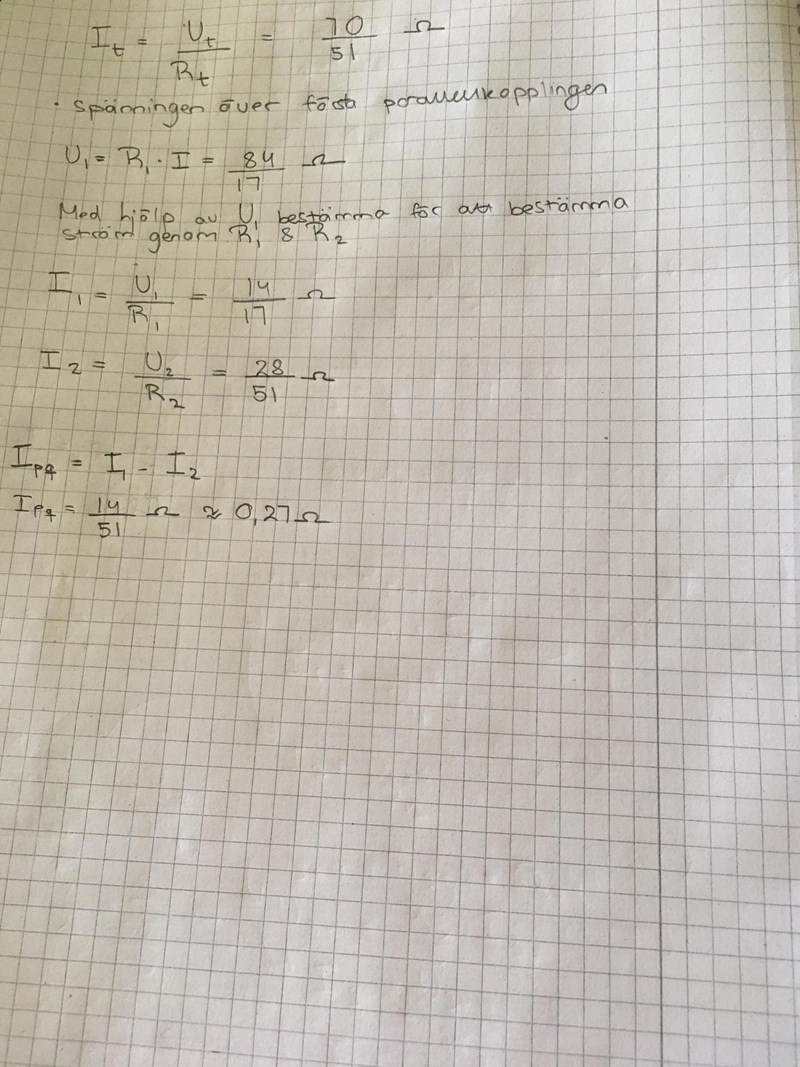 I_t = U_t / R_t = 70 / 51 Ω
· Spänningen över första parallellkopplingen
U_1 = R_1 · I = 84 / 17 Ω
Med hjälp av U_1 bestämma för att bestämma
ström genom R_1 & R_2
I_1 = U_1 / R_1 = 14 / 17 Ω
I_2 = U_2 / R_2 = 28 / 51 Ω
I_pq = I_1 - I_2
I_pq = 14 / 51 Ω ≈ 0,27 Ω